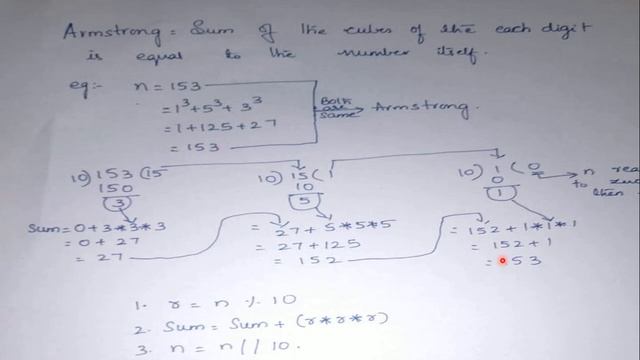 Armstrong = Sum of the cubes of the each digit
is equal to the number itself.
eg:- n = 153
= 1³ + 5³ + 3³
= 1 + 125 + 27
= 153
Both are same
Armstrong.
10) 153 (15
150
3
Sum = 0 + 3*3*3
= 0 + 27
= 27
10) 15 ( 1
10
5
= 27 + 5*5*5
= 27 + 125
= 152
10) 1 ( 0
0
1
n
to
then
= 152 + 1*1*1
= 152 + 1
= 53
1. r = n % 10
2. Sum = Sum + (r*r*r)
3. n = n // 10.